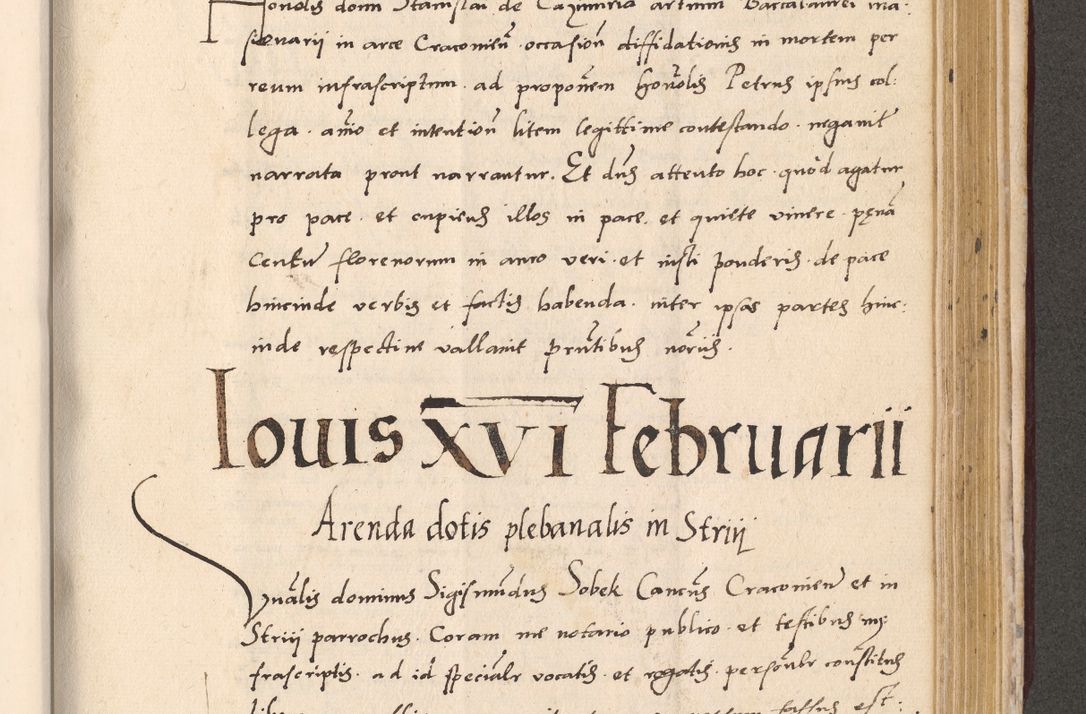 Honolis domi Stanislai de Cazimiria artium Baccalaurei ma:
sionarij in arce Craconien̄ · occasion̄ diffidationis in mortem per
reum infrascriptum · ad propon̄em honolis Petrus ipsius col:
lega · an̄io et intention̄ litem legittime contestando · negauit
narrata prout narrantur. Et dn̄s attento hoc · quod agatur
pro pace · et cupiens illos in pace · et quiete viuere · pęnā
Centum florenorum in auro veri · et iusti ponderis · de pace
hincinde verbis et factis habenda · inter ipsas partes hinc:
inde respectiue vallauit prn̄tibus nōrijs ·
Iouis XVI Februarii
Arenda dotis plebanalis in Strij
Vn̄alis dominus Sigismūdus Sobek Can̄cus Craconien̄ et in
Strij parrochus · Coram me notario publico · et testibus in:
frascriptis · ad id specialr vocatis · et rogatis · personalr constitus